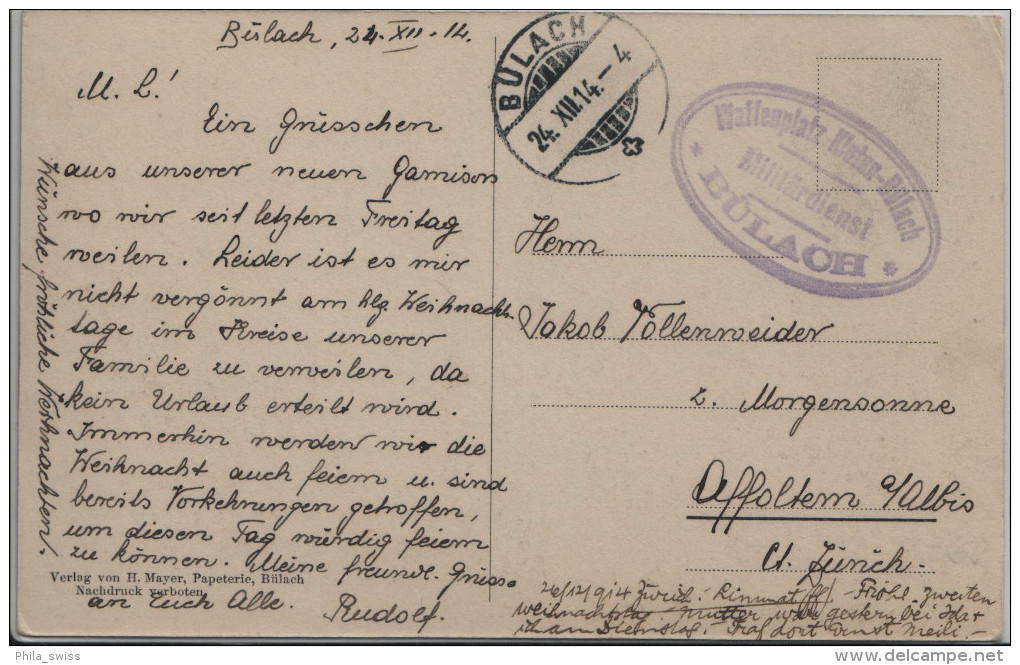 Bülach, 24.XII.14.
M. L!
Ein Grüsschen
aus unserer neuen Garnison
wo wir seit letzten Freitag
weilen. Leider ist es mir
nicht vergönnt am hlg. Weihnachts-
tage im Kreise unserer
Familie zu verweilen, da
kein Urlaub erteilt wird.
Immerhin werden wir die
Weihnacht auch feiern u. sind
bereits Vorkehrungen getroffen,
um diesen Tag würdig feiern
zu können. Meine freundl. Grüsse
an Euch Alle. Rudolf.
Wünsche fröhliche Weihnachten.
Verlag von H. Mayer, Papeterie, Bülach
Nachdruck verboten
BÜLACH
24.XII.14.-4
Waffenplatz Kloten-Bülach
Militärdienst
BÜLACH
Herrn
Jakob Vollenweider
z. Morgensonne
Affoltern a/Albis
Ct. Zürich.
26/12/914 Zürich. - Fröhl. zweiten
Weihnachtstag Mutter war gestern bei
ihr am Dienstag. Traf dort Ernst Meili. -
Phila_swiss
www.delcampe.net